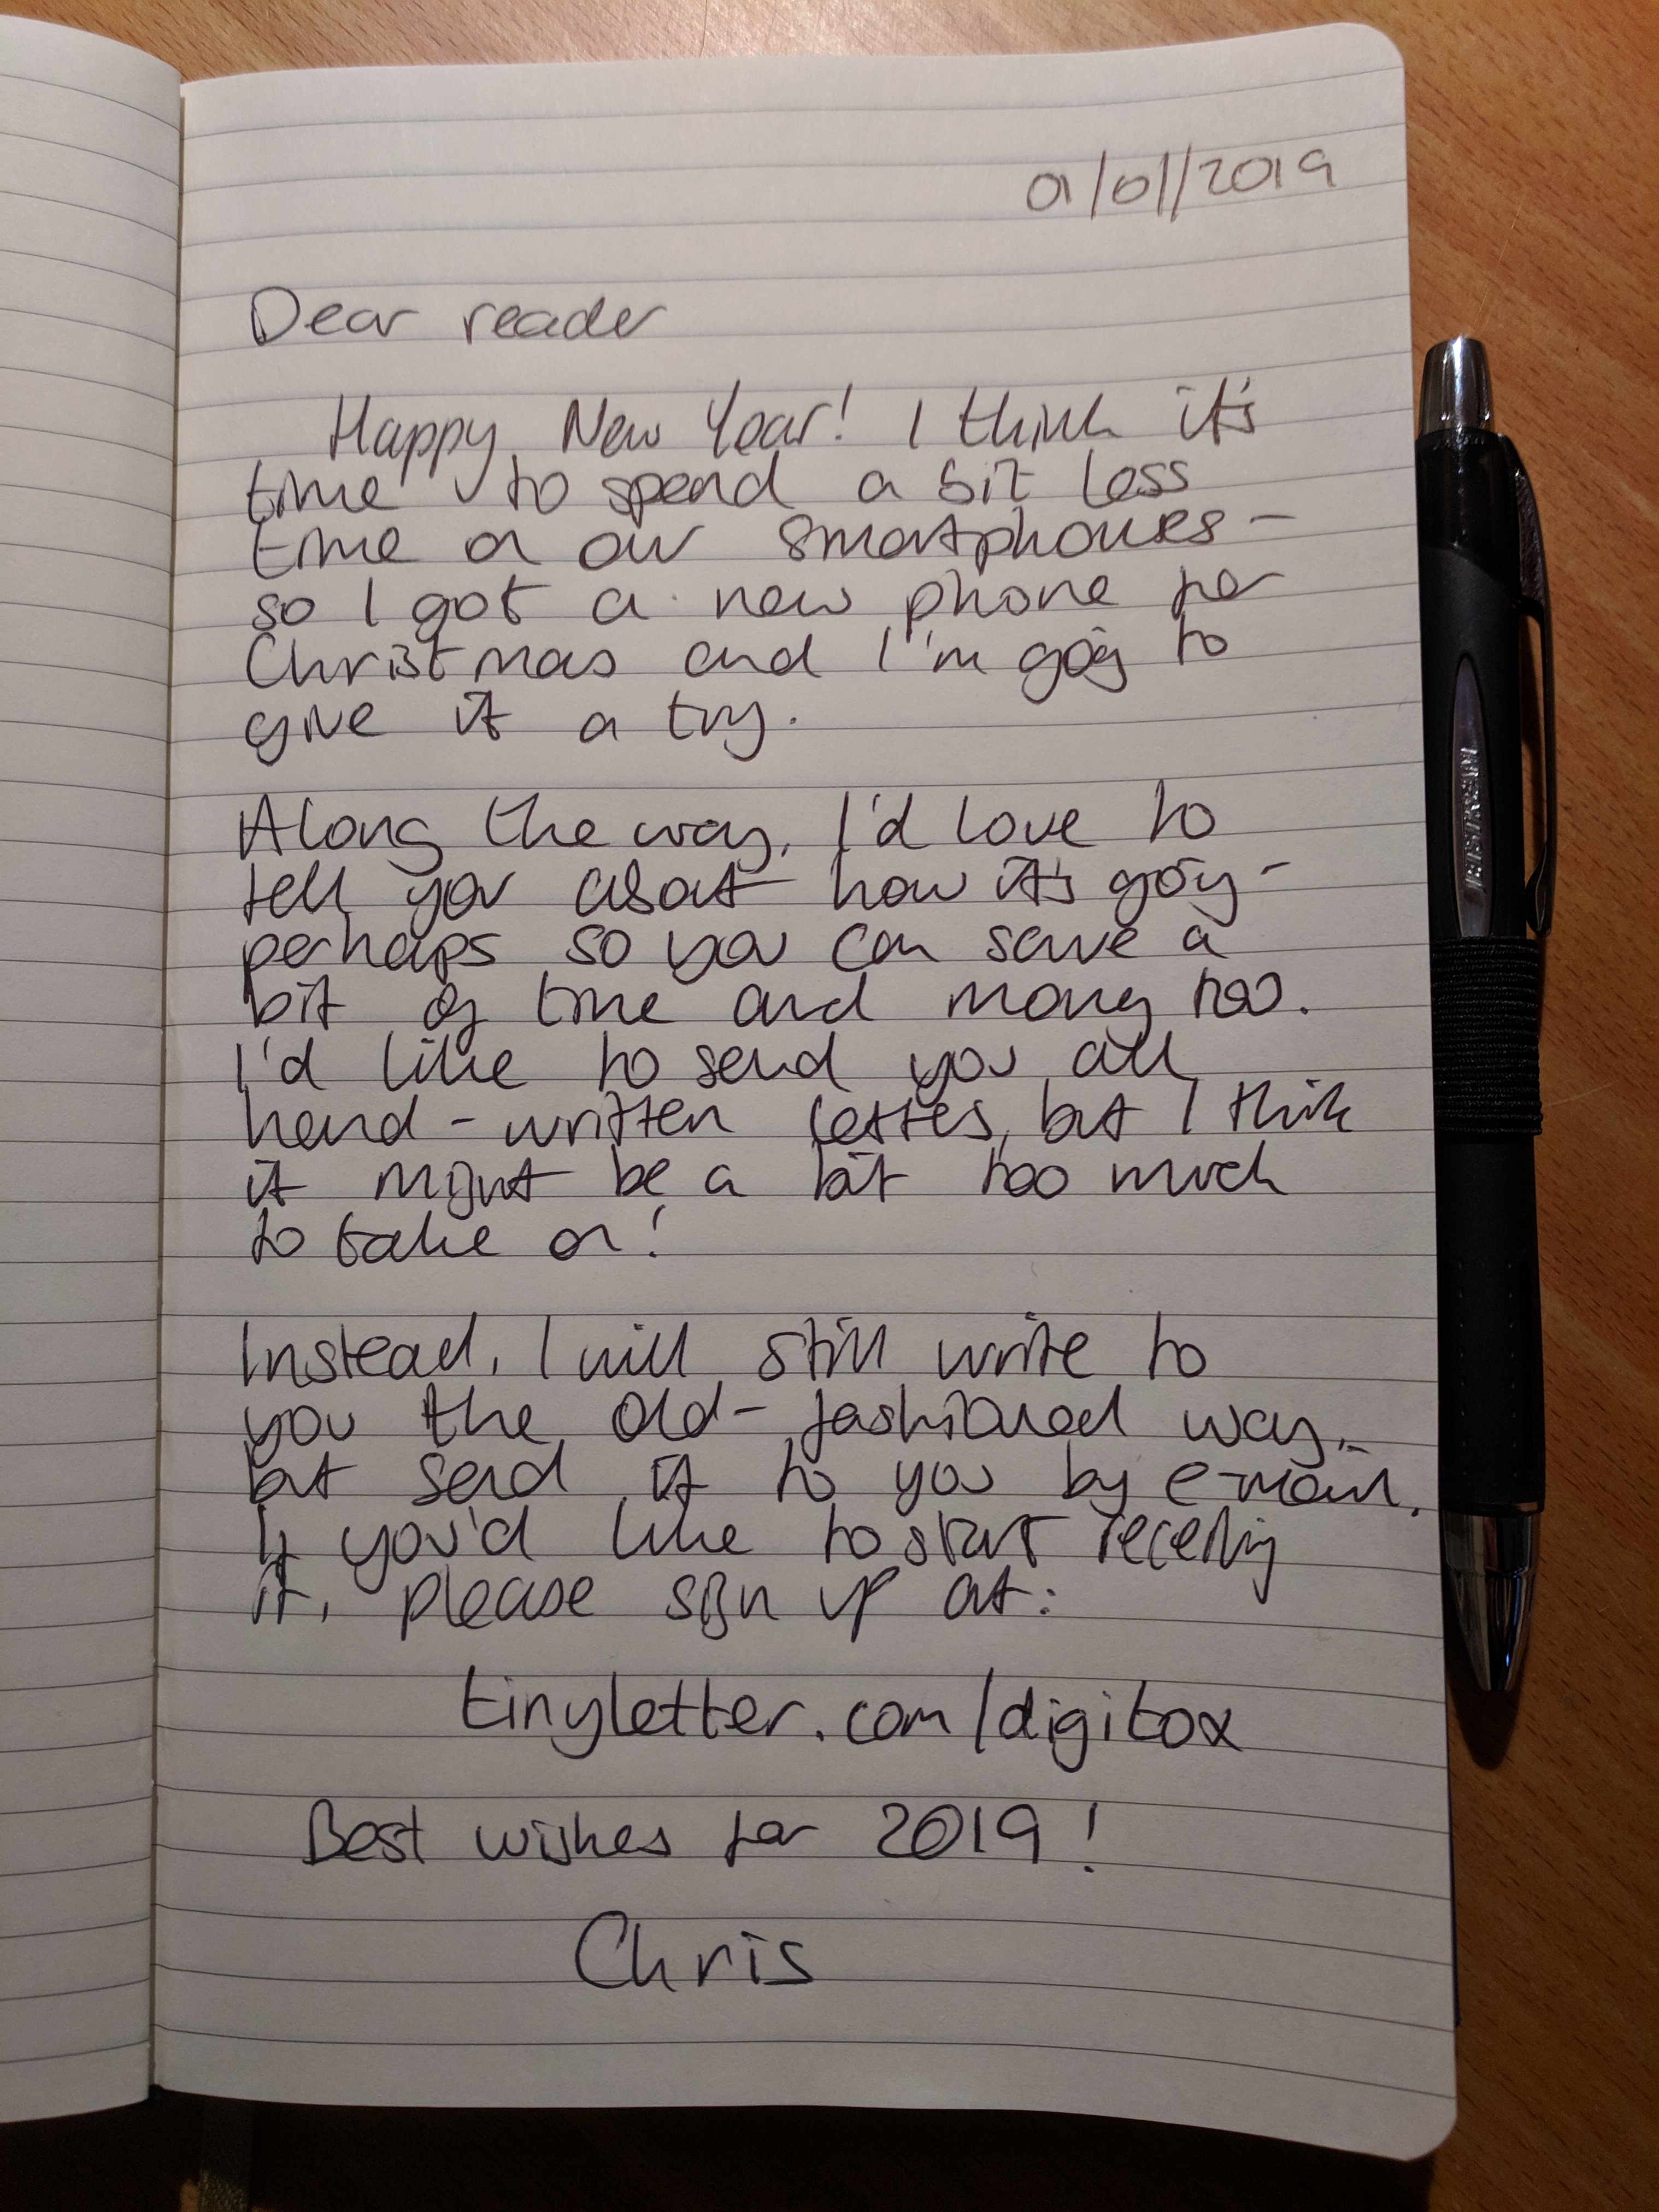 01/01/2019
Dear reader
Happy New Year! I think it's
time to spend a bit less
time on our smartphones -
so I got a new phone for
Christmas and I'm going to
give it a try.
Along the way, I'd love to
tell you about how it's going -
perhaps so you can save a
bit of time and money too.
I'd like to send you all
hand-written letters, but I think
it might be a bit too much
to take on!
Instead, I will still write to
you the old-fashioned way,
but send it to you by e-mail.
If you'd like to start receiving
it, please sign up at:
tinyletter.com/digitox
Best wishes for 2019!
Chris
JETSTREAM